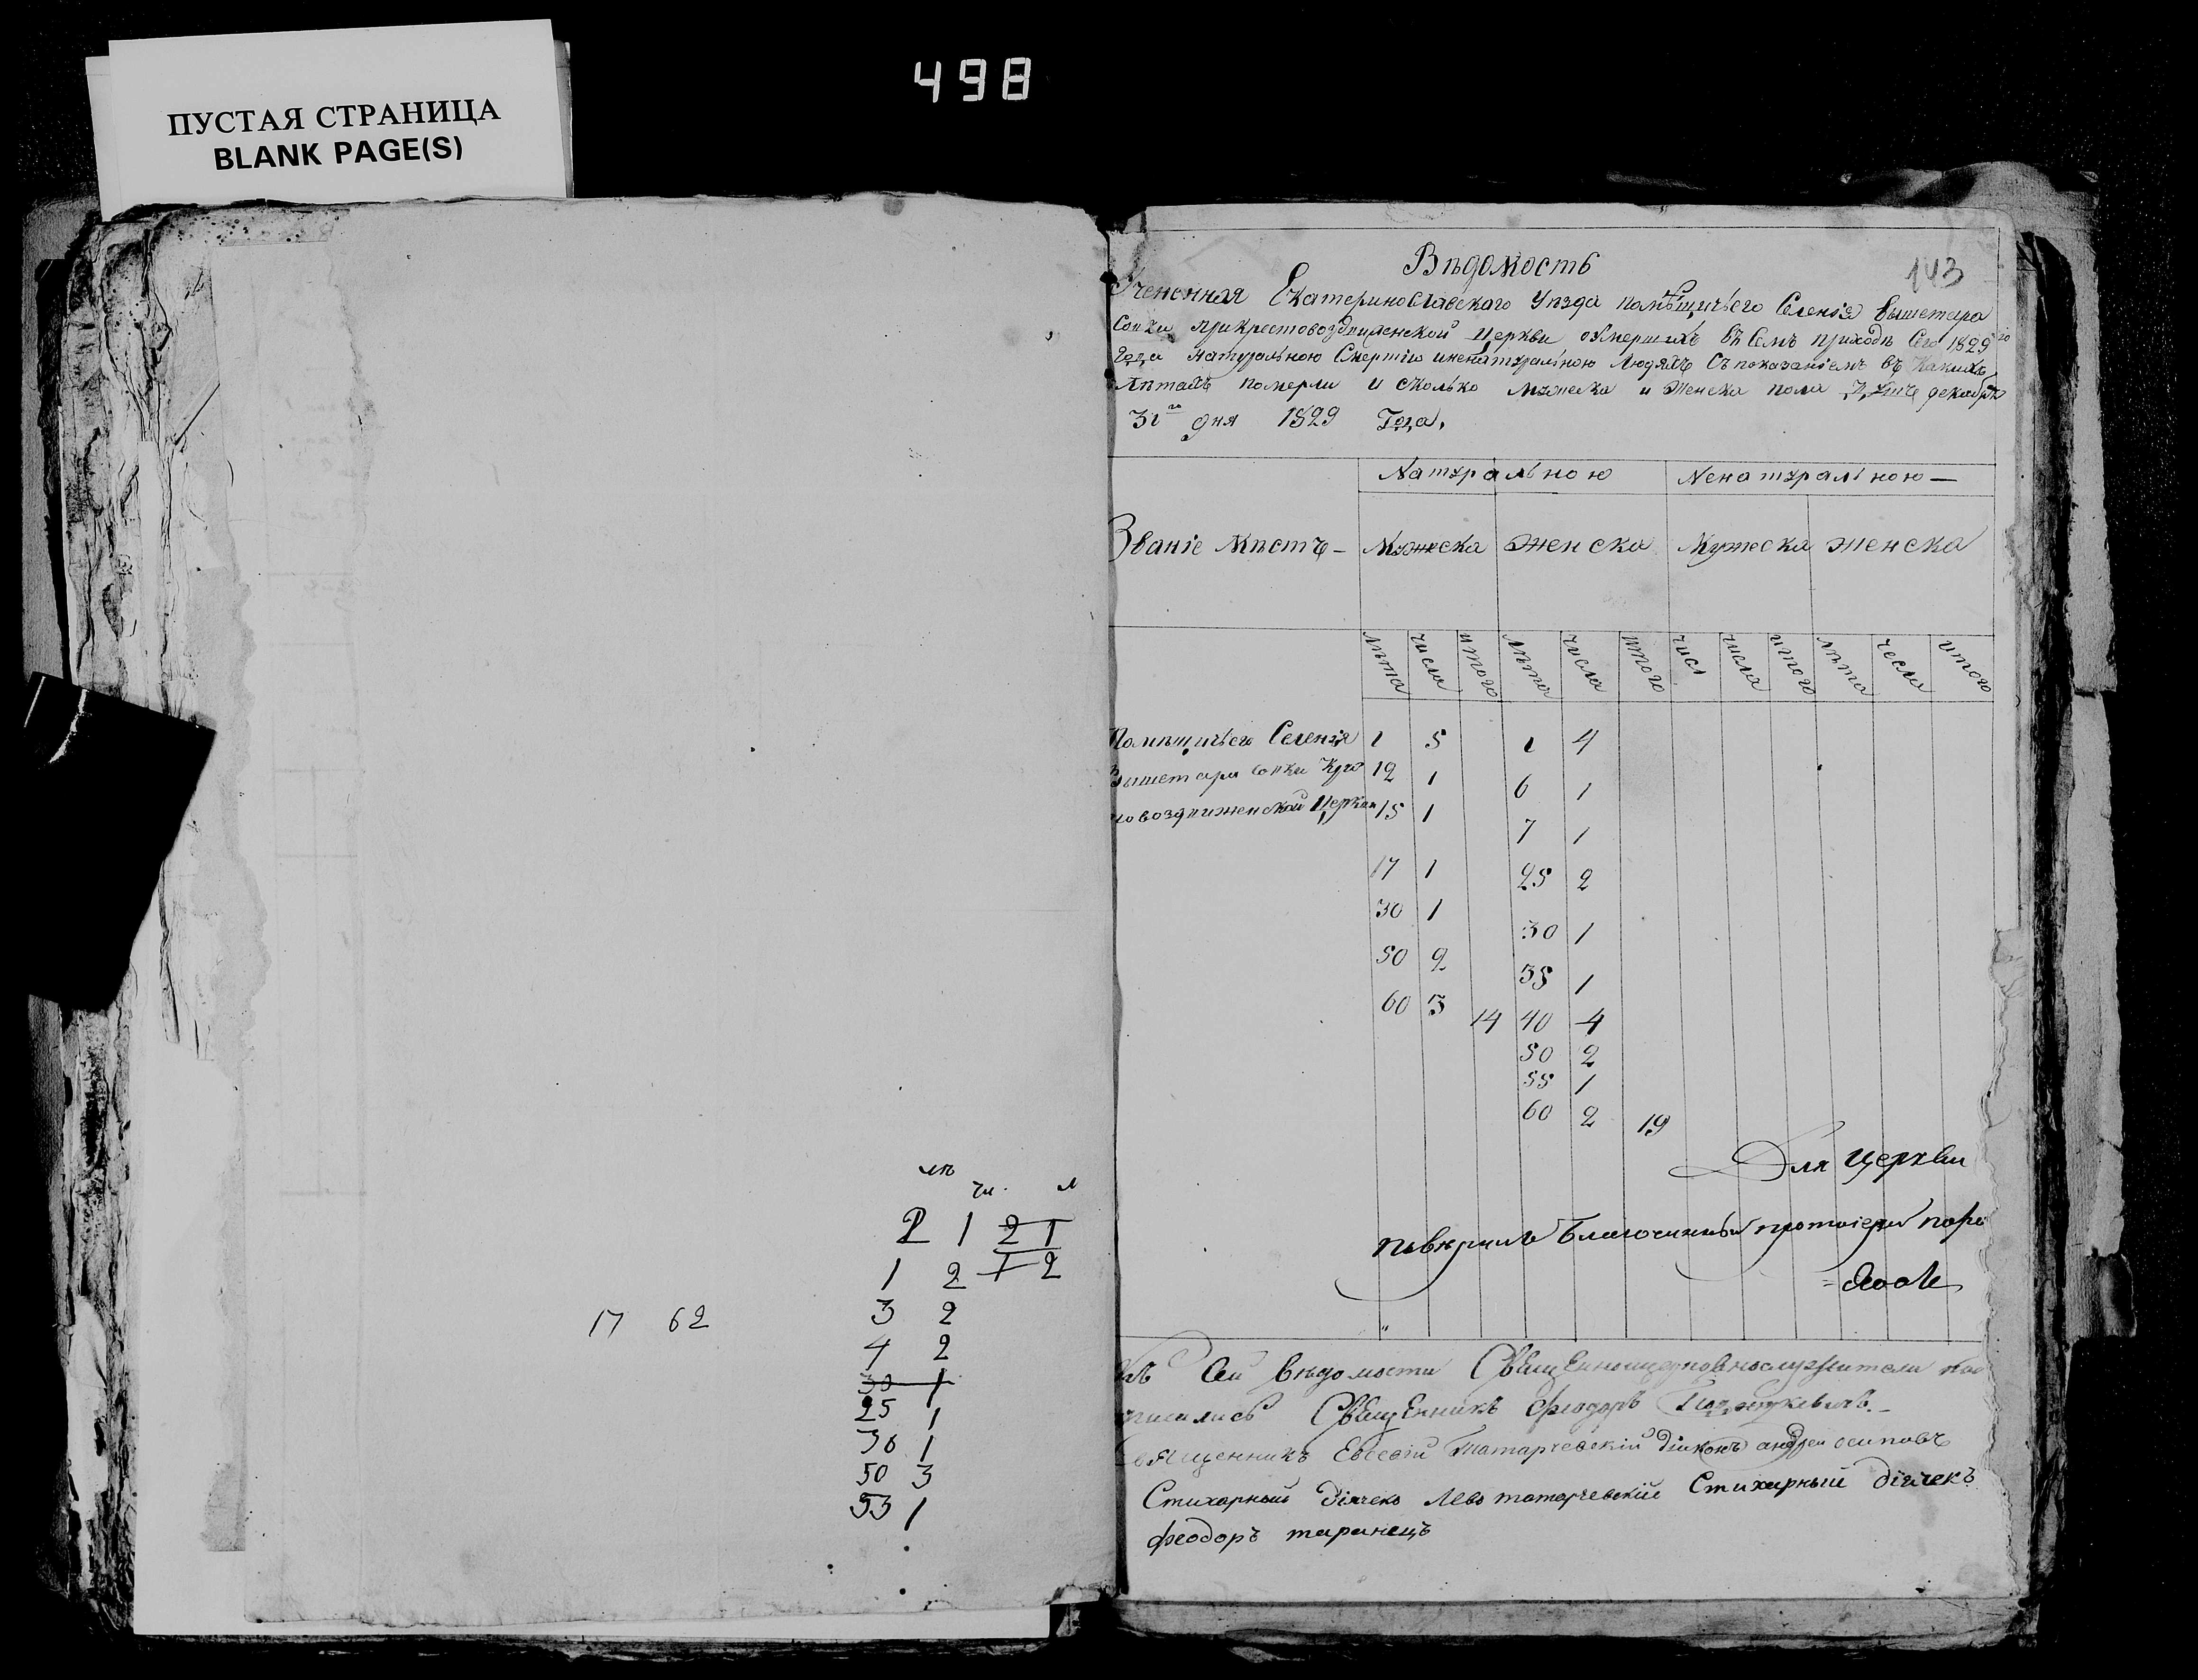 498
ПУСТАЯ СТРАНИЦА
BLANK PAGE(S)
лѣ
чи. м
2 1 2 1
1 2 1 2
3 2
4 2
30 1
25 1
30 1
50 3
53 1
17 62
Вѣдомость
143
Учененная Екатеринославского Уѣзда помѣщичьего Селенія Вышетара
сопки при крестовоздвиженской Церкви о умершихъ въ семъ приходѣ сего 1829го
Года натуральною Смертію и ненатуральною людяхъ съ показаніемъ въ какихъ
лѣтахъ померли и сколько мужеска и женска пола декабря
31го дня 1829 Года.
Натуральною Ненатуральною
Званіе Мѣстъ Мужеска Женска Мужеска женска
лѣта числа итого лѣта числа итого числ числа итого лѣта чесла итого
Помѣщичьего Селенія 1 5 1 4
Вышетара сопки 12 1 6 1
воздвиженской Церкви 15 1 7 1
17 1 25 2
30 1 30 1
50 2 35 1
60 3 14 40 4
50 2
55 1
60 2 19
Для церкви
повѣрилъ Благочинный протоіерей
Къ Сей вѣдомости Священноцерковнослужители под
писались Священникъ Феодоръ
священникъ Евсевій Татарчевскій діаконъ андрей осиповъ
Стихарный діячекъ Левъ татарчевскій Стихарный діячекъ
феодоръ таранецъ